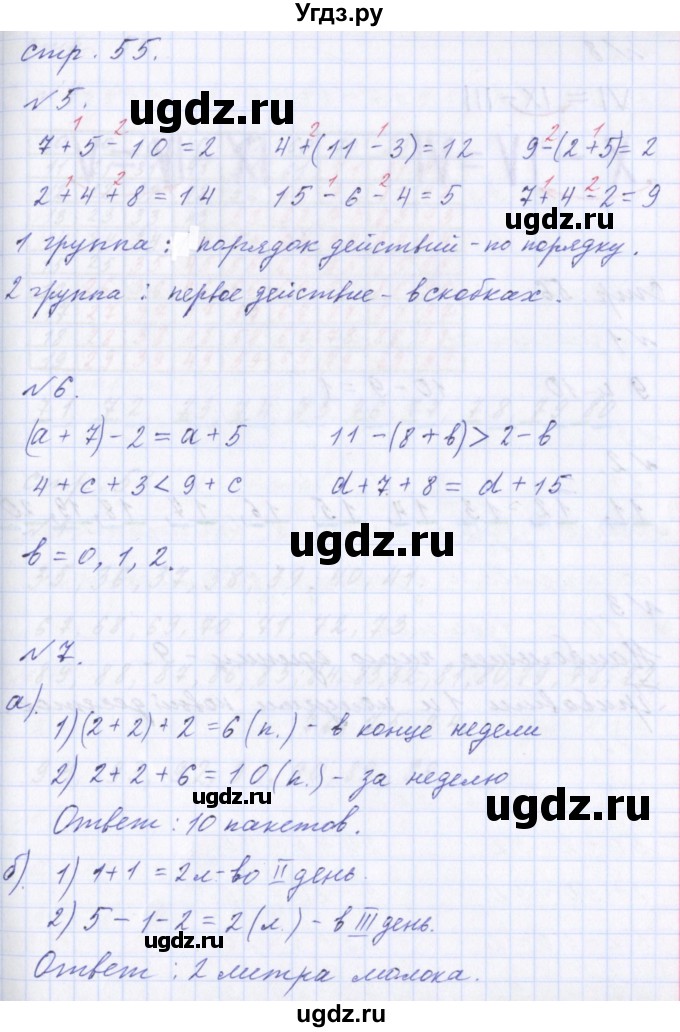 Угдз.ру
стр. 55.
№5.
7 + 5 - 10 = 2 4 + (11 - 3) = 12 9 - (2 + 5) = 2
2 + 4 + 8 = 14 15 - 6 - 4 = 5 7 + 4 - 2 = 9
1 группа: порядок действий - по порядку.
2 группа: первое действие - в скобках.
№6.
(a + 7) - 2 = a + 5 11 - (8 + в) > 2 - в
4 + c + 3 < 9 + c d + 7 + 8 = d + 15
в = 0, 1, 2.
№7.
а).
1) (2 + 2) + 2 = 6 (п.) - в конце недели
2) 2 + 2 + 6 = 10 (п.) - за неделю
Ответ: 10 пакетов.
б). 1) 1 + 1 = 2 л - во II день.
2) 5 - 1 - 2 = 2 (л.) - в III день.
Ответ: 2 литра молока.
ugdz.ru
ugdz.ru
ugdz.ru
ugdz.ru
ugdz.ru
ugdz.ru
ugdz.ru
ugdz.ru